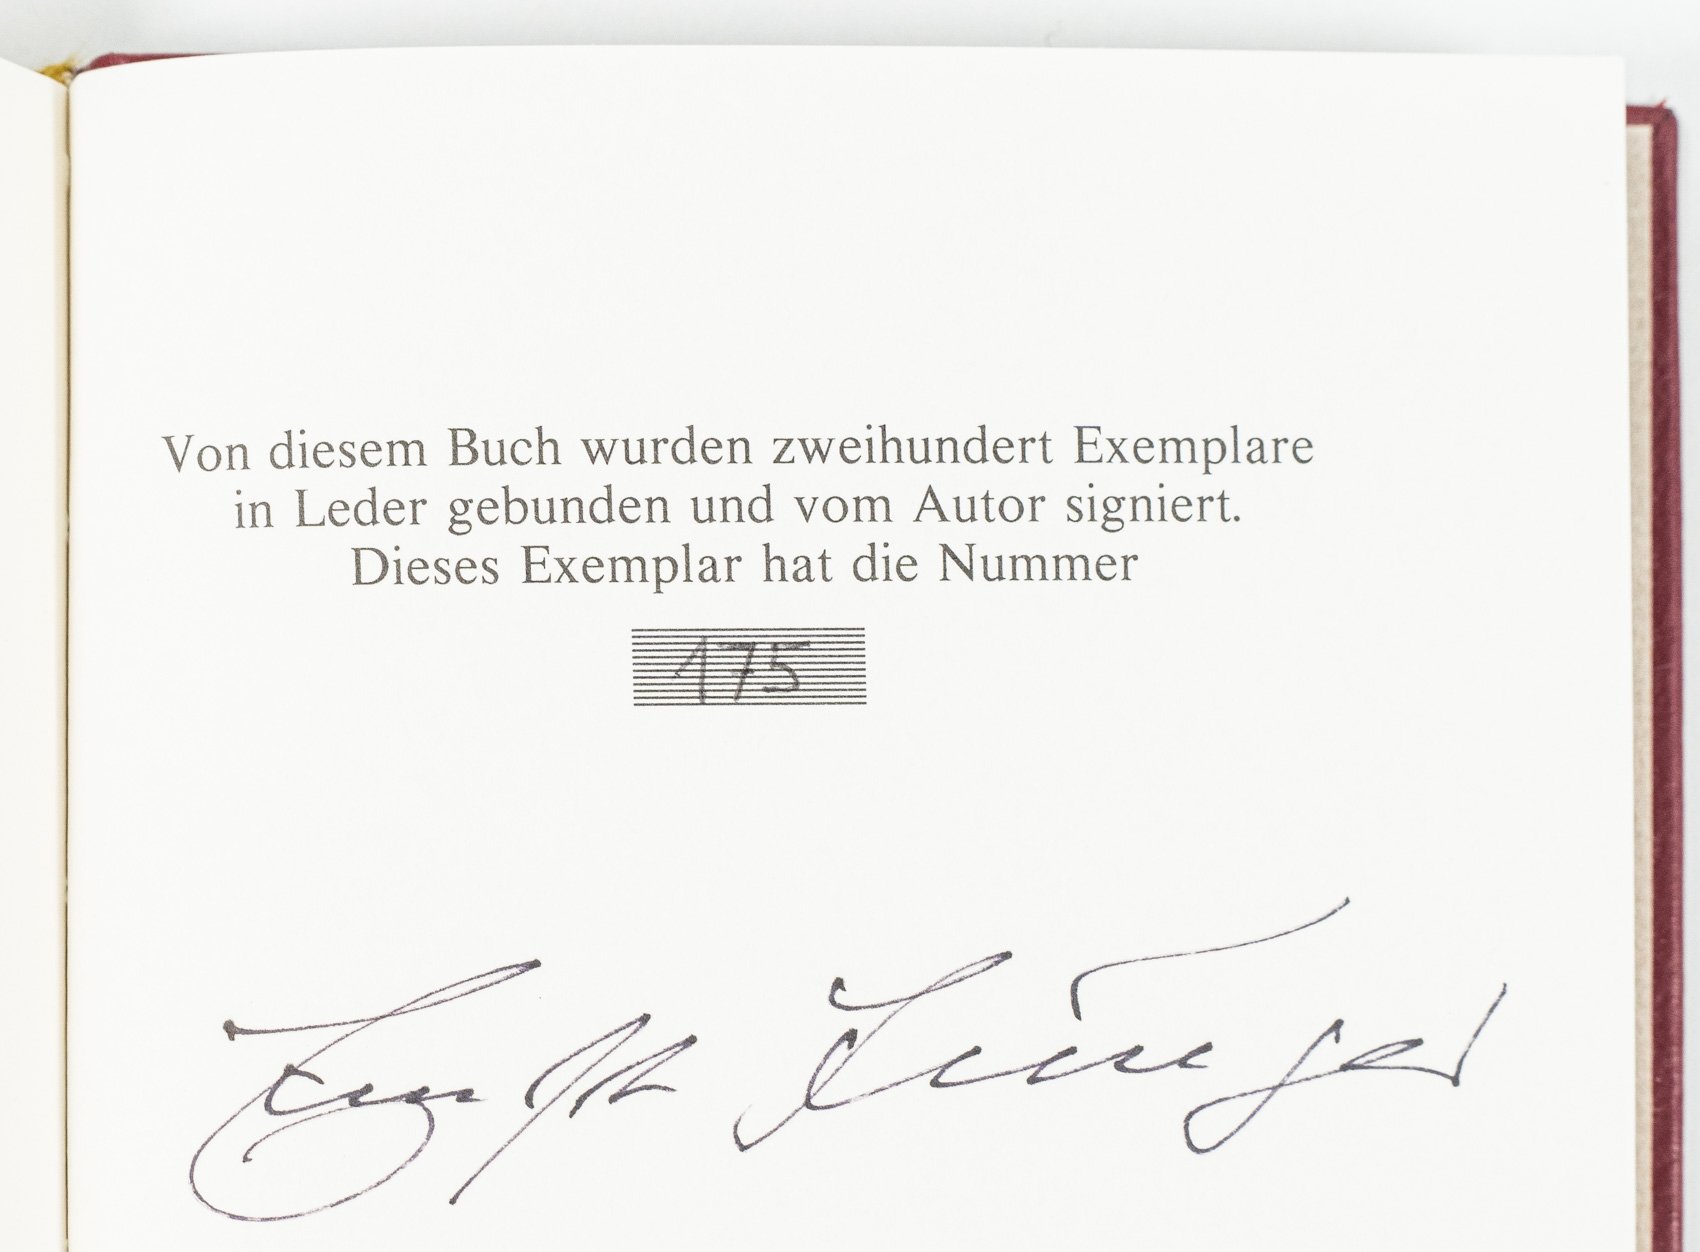 Von diesem Buch wurden zweihundert Exemplare
in Leder gebunden und vom Autor signiert.
Dieses Exemplar hat die Nummer
175
Ernst Jünger